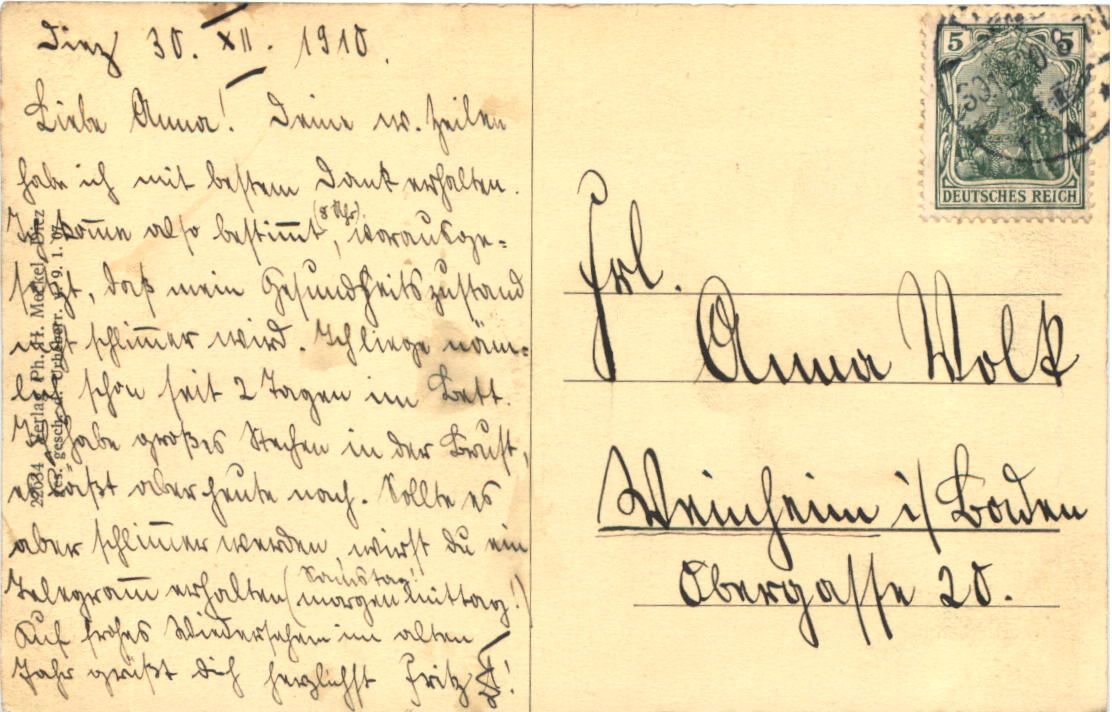 Diez 30. XII. 1910.
Liebe Anna! Deine w. Zeilen
habe ich mit bestem Dank erhalten.
Ich komme also bestimmt (8 Uhr), vorausge=
setzt, daß mein Gesundheitszustand
nicht schlimmer wird. Ich liege näm=
lich schon seit 2 Tagen im Bett.
Ich habe großes Stechen in der Brust,
es läßt aber heute nach. Sollte es
aber schlimmer werden, wirst du ein
Telegramm erhalten (Samstag!
morgen Mittag!)
Auf frohes Wiedersehen im alten
Jahr grüßt dich herzlichst Fritz
22634 Verlag Ph. H. Meckel, Diez
Ges. gesch. d. Urheberr. v. 9. 1. 07.
5 5
DEUTSCHES REICH
Frl.
Anna Wolk
Weinheim i/ Baden
Obergasse 20.